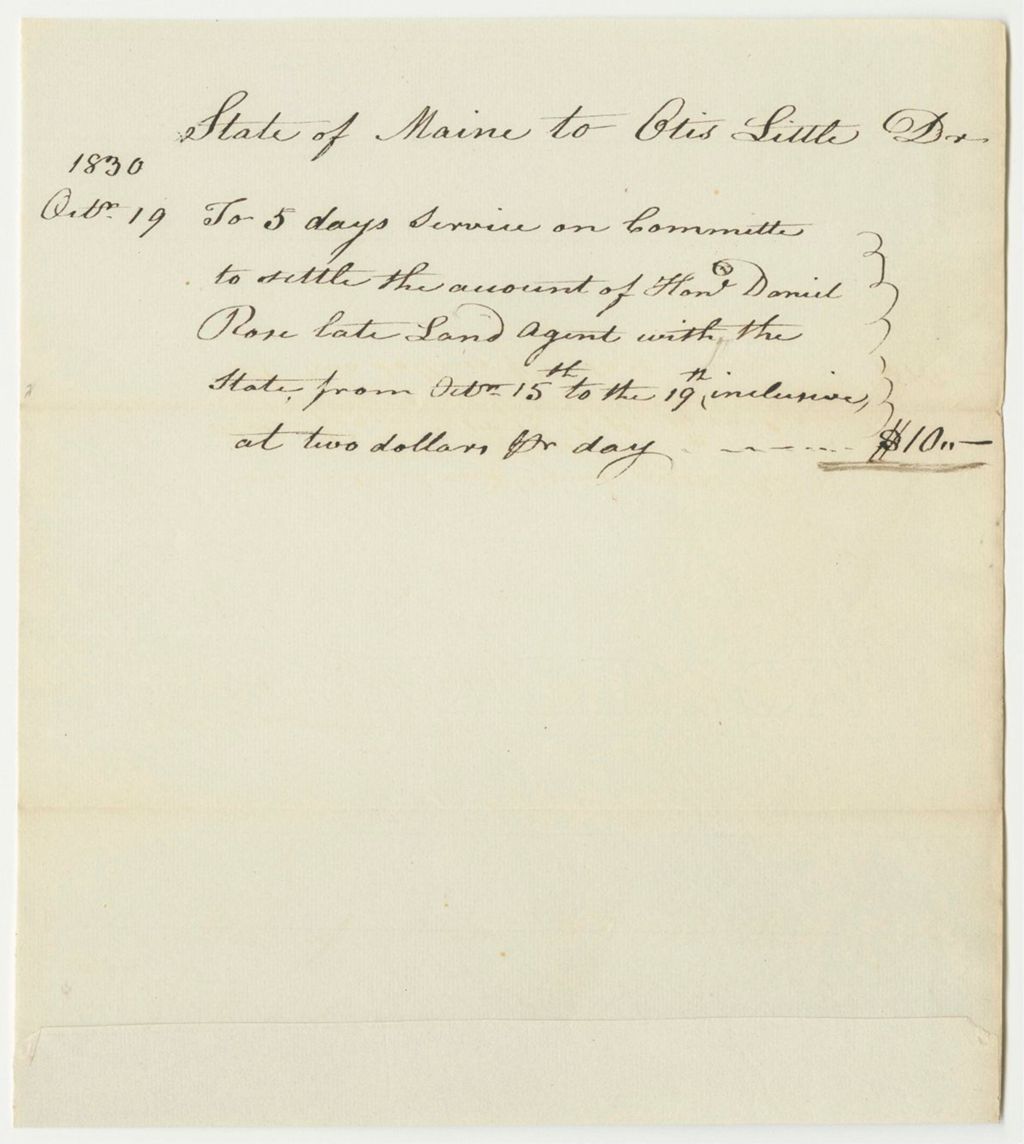 State of Maine to Otis Little Dr
1830
Octbr 19 To 5 days service on Committe
to settle the account of Honl Daniel
Rose late Land Agent with the
State, from Octbr 15th to the 19th, inclusive,
at two dollars pr day - - - - $10,,—